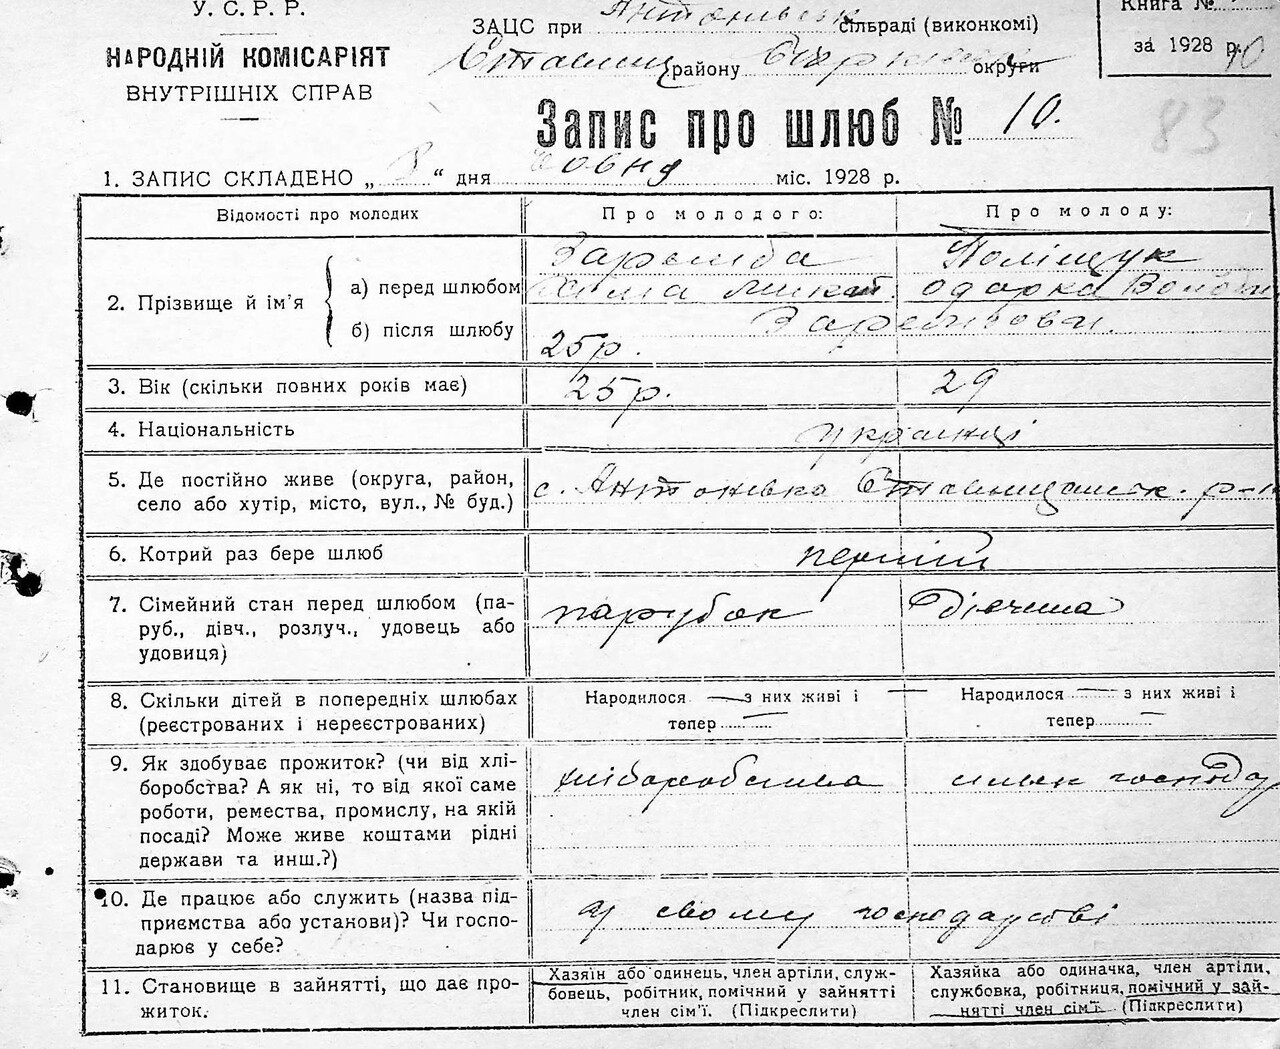 У. С. Р. Р.
НАРОДНІЙ КОМІСАРІЯТ
ВНУТРІШНІХ СПРАВ
ЗАЦС при Антонівськ сільраді (виконкомі)
району округи
Книга №
за 1928 р.
Запис про шлюб № 10.
83
1. ЗАПИС СКЛАДЕНО „ 3 “ дня міс. 1928 р.
Відомості про молодих
Про молодого:
Про молоду:
2. Прізвище й ім’я
а) перед шлюбом
б) після шлюбу
Заремба
Поліщук
Одарка
25р.
3. Вік (скільки повних років має)
25р.
29
4. Національність
українці
5. Де постійно живе (округа, район,
село або хутір, місто, вул., № буд.)
с. Антонівка Ставищанськ. р-н
6. Котрий раз бере шлюб
7. Сімейний стан перед шлюбом (па-
руб., дівч., розлуч., удовець або
удовиця)
парубок
Дівчина
8. Скільки дітей в попередніх шлюбах
(реєстрованих і нереєстрованих)
Народилося — з них живі і
тепер —
Народилося — з них живі і
тепер —
9. Як здобуває прожиток? (чи від хлі-
боробства? А як ні, то від якої саме
роботи, ремества, промислу, на якій
посаді? Може живе коштами рідні
держави та инш.?)
10. Де працює або служить (назва під-
приємства або установи)? Чи госпо-
дарює у себе?
у свому господарстві
11. Становище в зайнятті, що дає про-
житок.
Хазяїн або одинець, член артіли, служ-
бовець, робітник, помічний у зайнятті
член сім’ї. (Підкреслити)
Хазяйка або одиначка, член артіли,
службовка, робітниця, помічний у зай-
нятті член сім’ї. (Підкреслити)